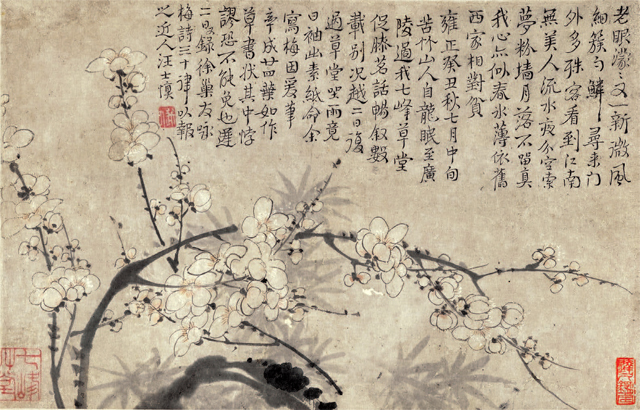 老眼濛濛又一新微風
細簇勻鱗鱗尋来門
外多殊客看到江南
無美人流水夜分空索
夢粉墻月落不留真
我心点似春氷薄依舊
西家相對貧
雍正癸丑秋七月中旬
苦竹山人自龍眠至廣
陵過我七峰草堂
促膝茗話暢叙數
載別況越二日復
過草堂坐雨竟
日袖此素紙命余
寫梅因爰筆
成廿四葉如作
草書狀其中悖
謬恐不能免也遲
二日錄徐巢友詠
梅詩三十律以報
之近人汪士慎
七峰草堂